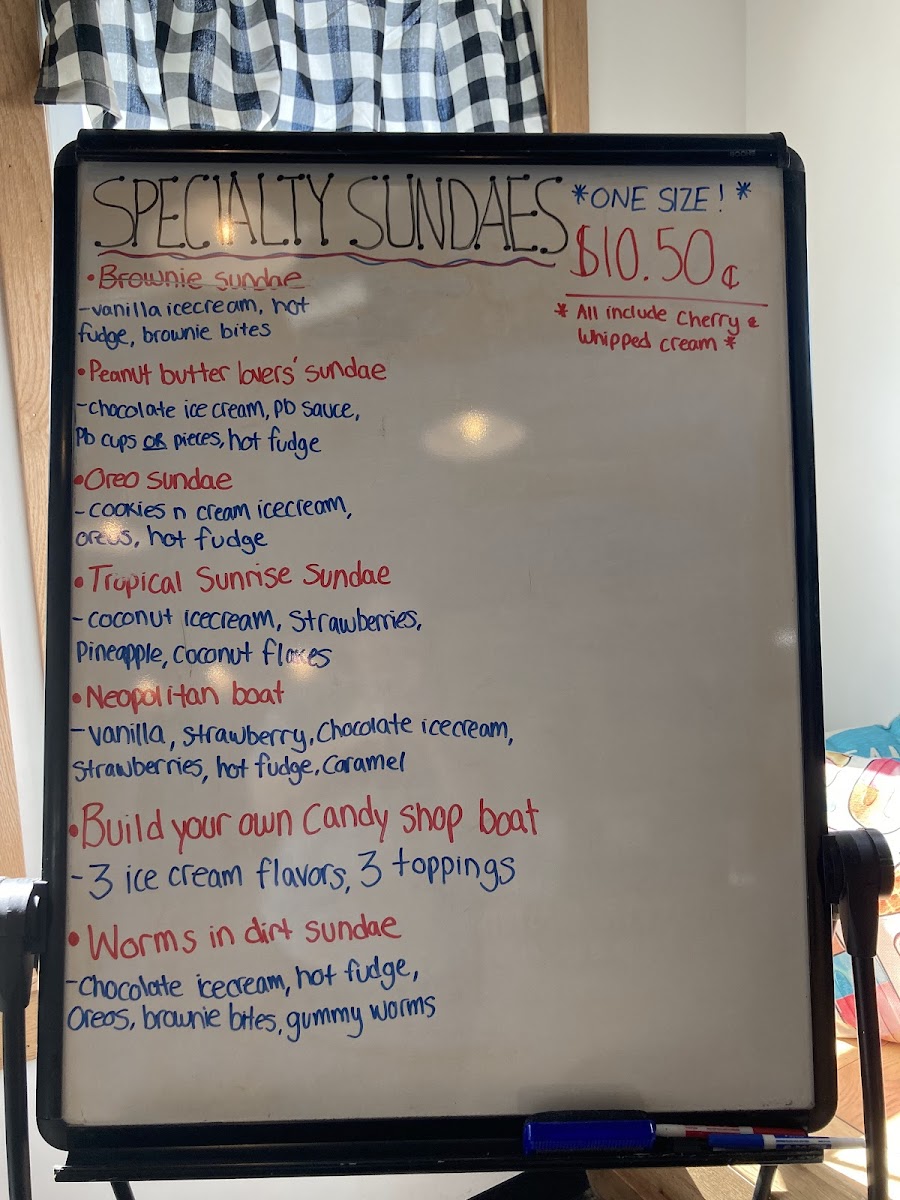 SPECIALTY SUNDAES
*ONE SIZE! *
$10.50¢
* All include cherry &
whipped cream *
•Brownie sundae
-vanilla icecream, hot
fudge, brownie bites
•Peanut butter lovers' sundae
-chocolate ice cream, Pb sauce,
Pb cups OR pieces, hot fudge
•Oreo sundae
-cookies n cream icecream,
oreos, hot fudge
•Tropical Sunrise Sundae
-coconut icecream, Strawberries,
Pineapple, coconut flakes
•Neopolitan boat
-vanilla, strawberry, Chocolate icecream,
Strawberries, hot fudge, Caramel
•Build your own Candy Shop boat
-3 ice cream flavors, 3 toppings
•Worms in dirt sundae
-Chocolate icecream, hot fudge,
Oreos, brownie bites, gummy worms